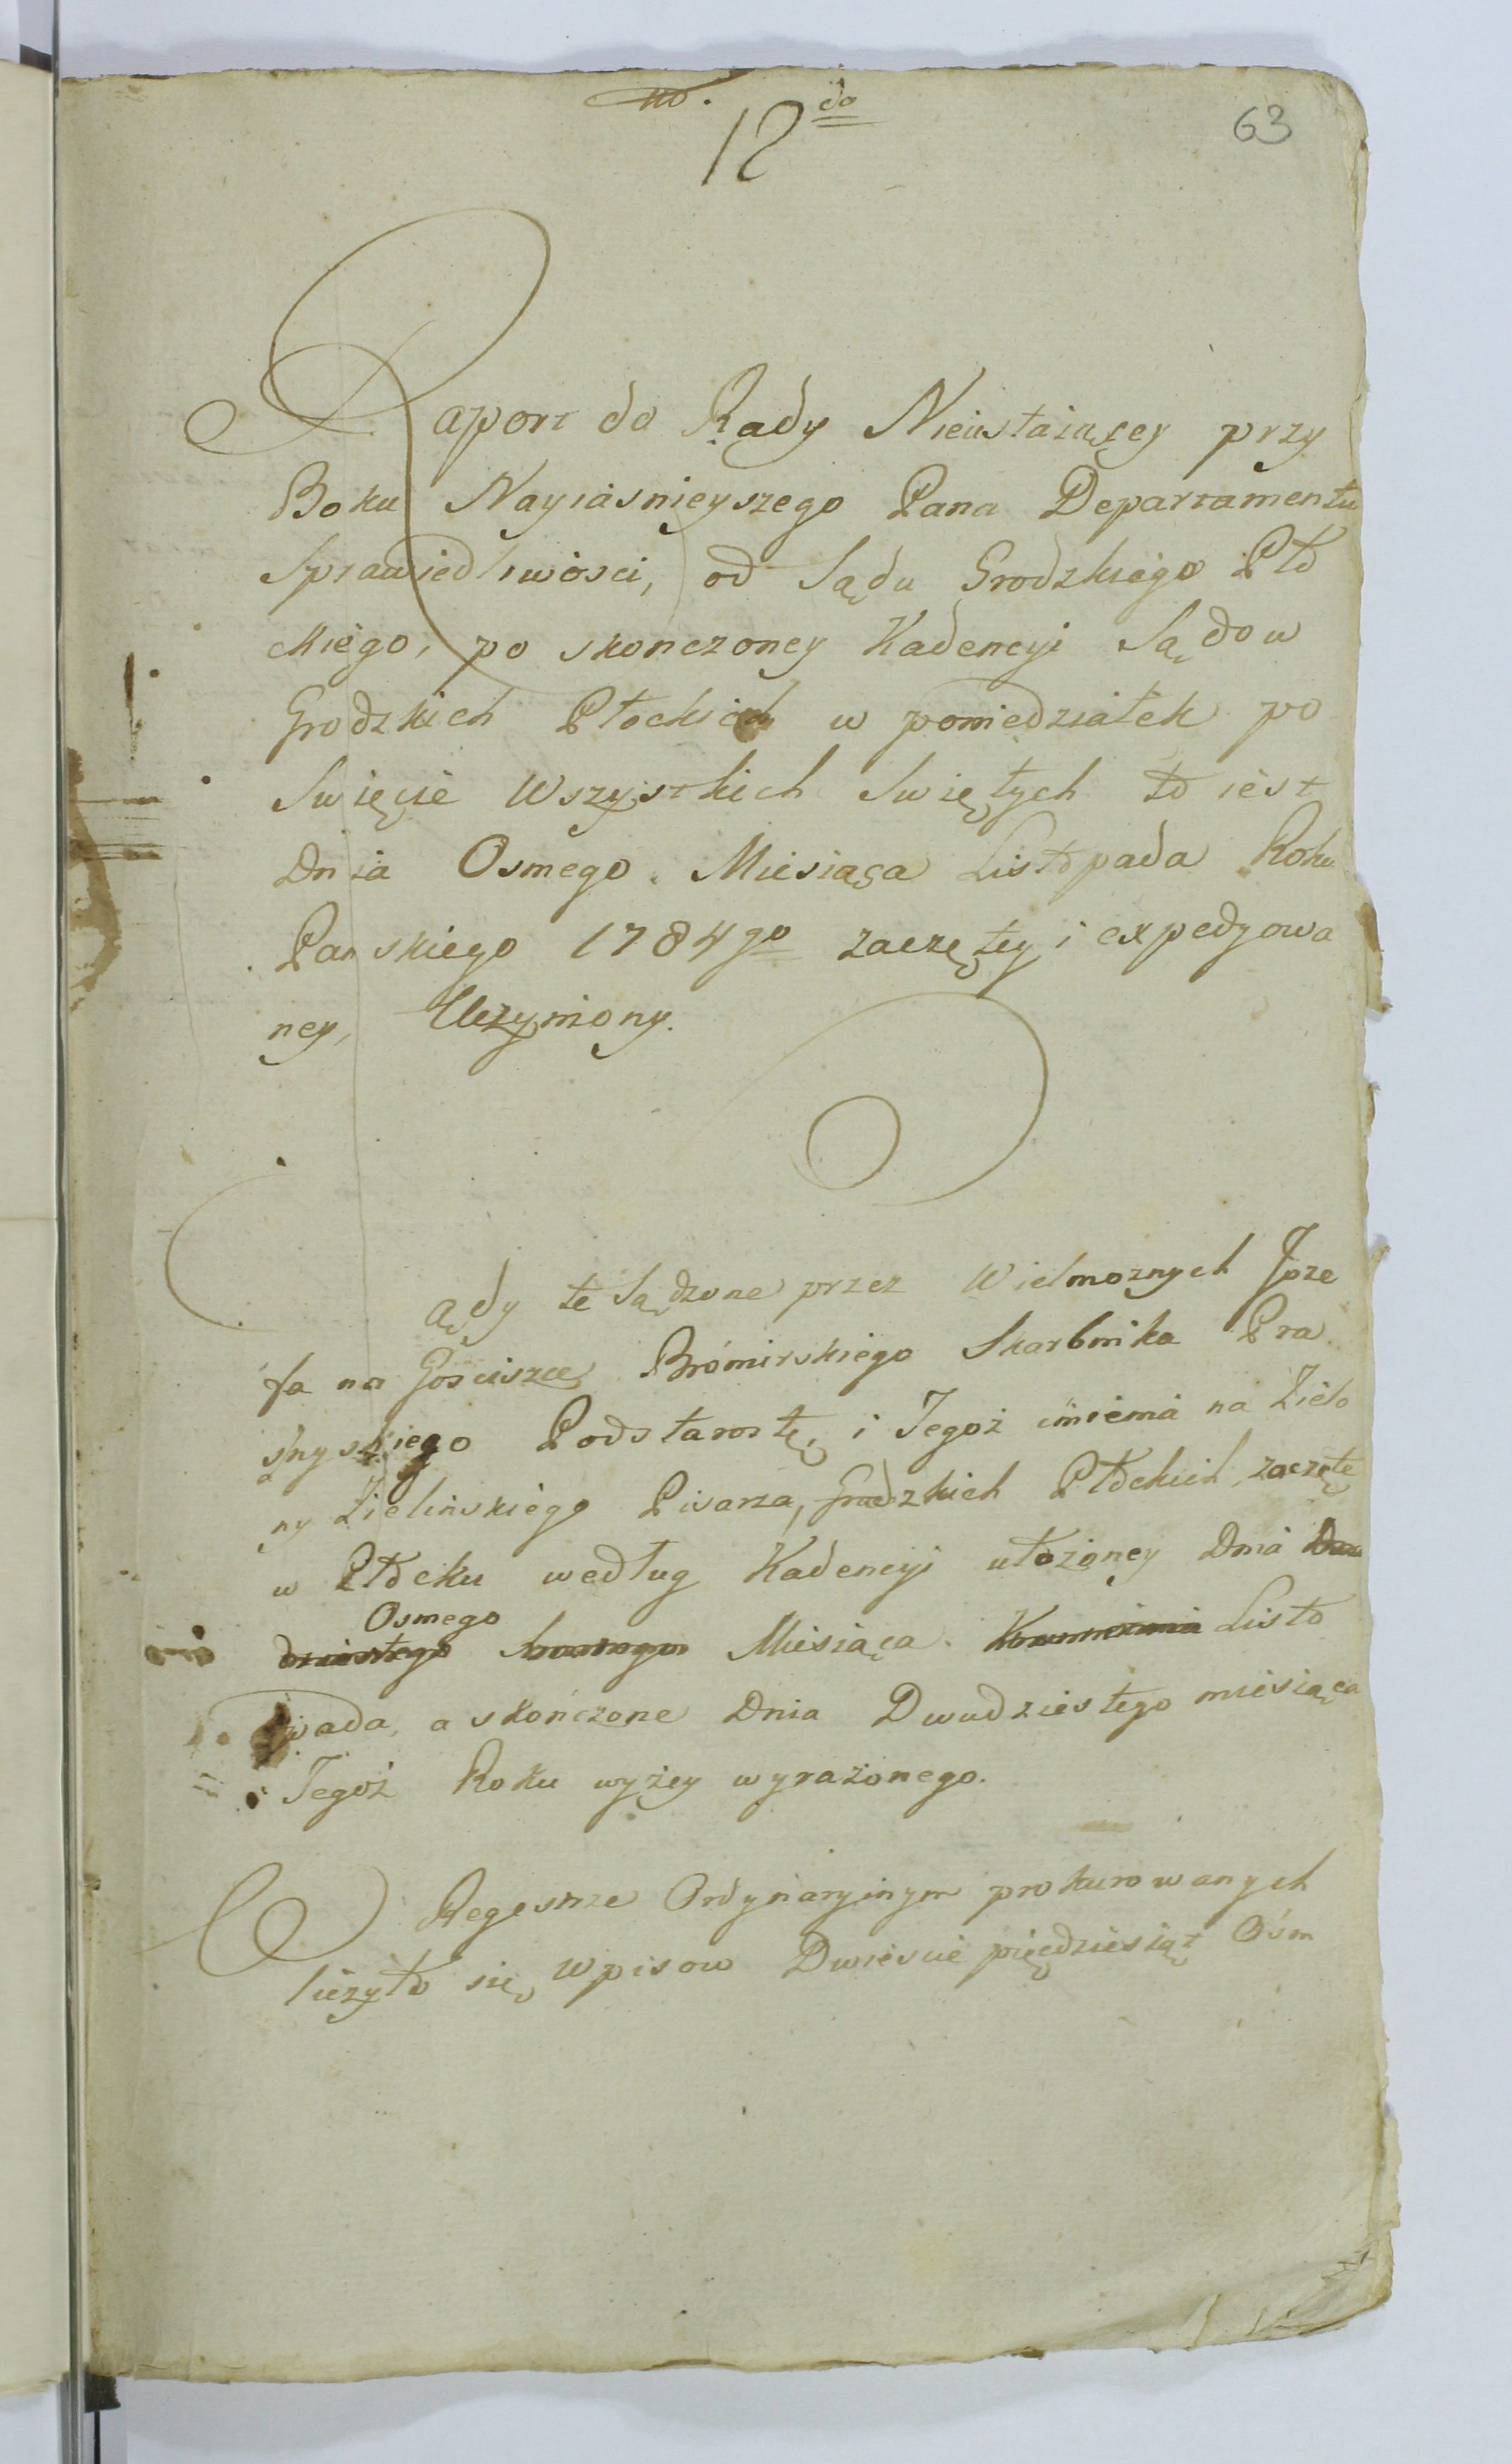 No.
12do
63
Raport do Rady Nieustaiącey przy
Boku Nayiasnieyszego Pana Departamentu
Sprawiedliwości, od Sądu Grodzkiego Pło
ckiego, po skonczoney Kadencyi Sądow
Grodzkich Płockich w poniedziałek po
Swięcie Wszystkich Swiętych to iest
Dnia Osmego Miesiąca Listopada Roku
Panskiego 1784go zaczętey i expedyowa
ney, Uczyniony.
Sądy te Sądzone przez Wielmoznych Joze
fa na Gosciszce Bromirskiego Skarbnika Pra
snyskiego Podstarostę, i Tegoż imienia na Zielo
ny Zielinskiego Pisarza, Grodzkich Płockich, zaczęte
w Płocku według Kadencyi ułożoney Dnia Dwu
Osmego
dziestego Miesiąca Listo
pada, a skończone Dnia Dwudziestego miesiąca
i Tegoż Roku wyżey wyrażonego.
W Regestrze Ordynaryinym prokurowanych
liczyło się Wpisow Dwiescie pięcdziesiąt Ośm